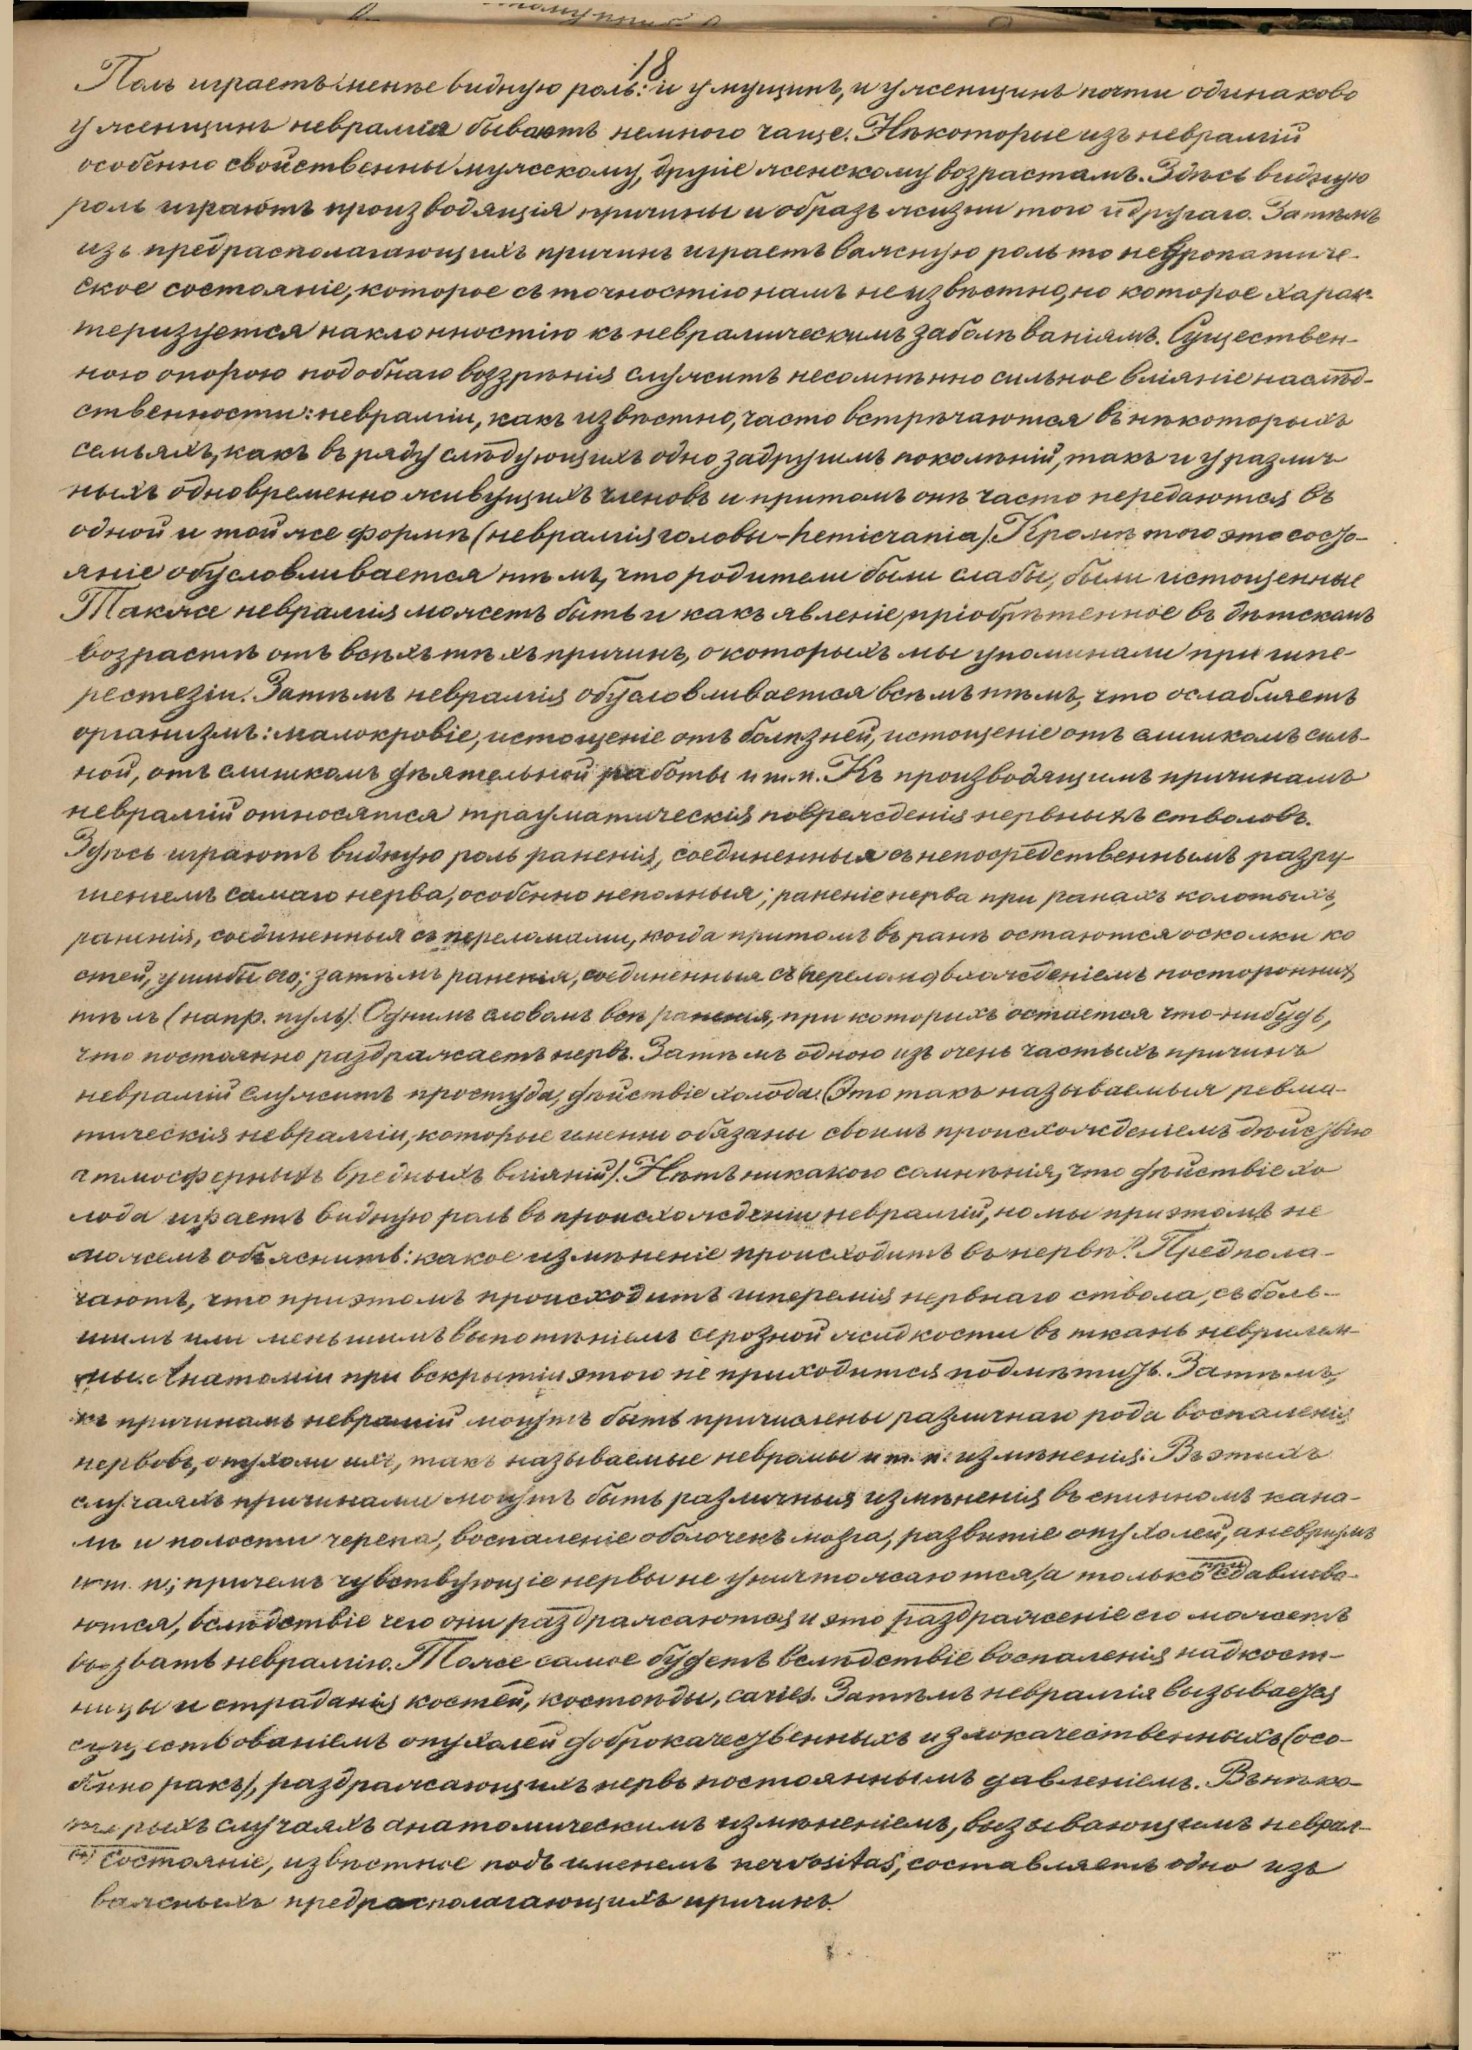 18
Полъ играетъ менѣе видную роль: и у мущинъ, и у женщинъ почти одинаково
у женщинъ невралгіа бываютъ немного чаще. Нѣкоторые изъ невралгій
особенно свойственны мужескому, другіе женскому возрастамъ. Здѣсь видную
роль играютъ производящія причины и образъ жизни того и другаго. Затѣмъ
изъ предрасполагающихъ причинъ играетъ важную роль то невропатиче-
ское состояніе, которое съ точностію намъ неизвѣстно, но которое харак-
теризуется наклонностію къ невралгическимъ заболѣваніямъ. Существен-
ною опорою подобнаго воззрѣнія служитъ несомнѣнно сильное вліяніе наслѣд-
ственности: невралгіи, какъ извѣстно, часто встрѣчаются въ нѣкоторыхъ
семьяхъ, какъ въ ряду слѣдующихъ одно за другимъ поколѣній, такъ и у различ
ныхъ одновременно живущихъ членовъ и притомъ онѣ часто передаются въ
одной и той же формѣ (невралгія головы - hemicrania). Кромѣ того это состо-
яніе обусловливается тѣмъ, что родители были слабы, были истощенные
Также невралгія можетъ быть и какъ явленіе, пріобрѣтенное въ дѣтскомъ
возрастѣ отъ всѣхъ тѣхъ причинъ, о которыхъ мы упоминали при гипе-
рестезіи. Затѣмъ невралгія обусловливается всѣмъ тѣмъ, что ослабляетъ
организмъ: малокровіе, истощеніе отъ болѣзней, истощеніе отъ слишкомъ силь-
ной, отъ слишкомъ дѣятельной работы и т.п. Къ производящимъ причинамъ
невралгій относятся травматическія поврежденія нервныхъ стволовъ.
Здѣсь играютъ видную роль раненія, соединенныя съ непосредственнымъ разру
шеніемъ самаго нерва, особенно неполныя; раненіе нерва при ранахъ колотыхъ,
раненія, соединенныя съ переломами, когда притомъ въ ранѣ остаются осколки ко
стей, ушибы его; затѣмъ раненія, соединенныя съ вхожденіемъ постороннихъ
тѣлъ (напр. пуль). Однимъ словомъ всѣ раненія, при которыхъ остается что-нибудь,
что постоянно раздражаетъ нервъ. Затѣмъ одною изъ очень частыхъ причинъ
невралгій служитъ простуда, дѣйствіе холода. (Это такъ называемыя ревма-
тическія невралгіи, которые именно обязаны своимъ происхожденіемъ дѣйствію
атмосферныхъ вредныхъ вліяній). Нѣтъ никакого сомнѣнія, что дѣйствіе хо
лода играетъ видную роль въ происхожденіи невралгій, но мы при этомъ не
можемъ объяснить: какое измѣненіе происходитъ въ нервѣ? Предпола-
гаютъ, что при этомъ происходитъ гиперемія нервнаго ствола, съ боль-
шимъ или меньшимъ выпотѣніемъ серозной жидкости въ ткань неврилем-
мы. Анатоміи при вскрытіи этого не приходится подмѣтить. Затѣмъ,
къ причинамъ невралгій могутъ быть причислены различнаго рода воспаленія
нервовъ, опухоли ихъ, такъ называемые невромы и т. п. измѣненія. Въ этихъ
случаяхъ причинами могутъ быть различныя измѣненія въ спинномъ кана-
лѣ и полости черепа, воспаленіе оболочекъ мозга, развитіе опухолей, аневризмъ
и т. п; причемъ чувствующіе нервы не уничтожаются, а только сдавлива-
ются, вслѣдствіе чего они раздражаются и это раздраженіе его можетъ
вызвать невралгію. Тоже самое будетъ вслѣдствіе воспаленія надкост-
ницы и страданія костей, костоѣды, caries. Затѣмъ невралгія вызывается
существованіемъ опухолей доброкачественныхъ и злокачественныхъ (осо-
бенно ракъ), раздражающихъ нервъ постояннымъ давленіемъ. Въ нѣко-
торыхъ случаяхъ анатомическимъ измѣненіемъ, вызывающимъ неврал-
(*) Состояніе, извѣстное подъ именемъ nervositas, составляетъ одно изъ
важныхъ предрасполагающихъ причинъ.